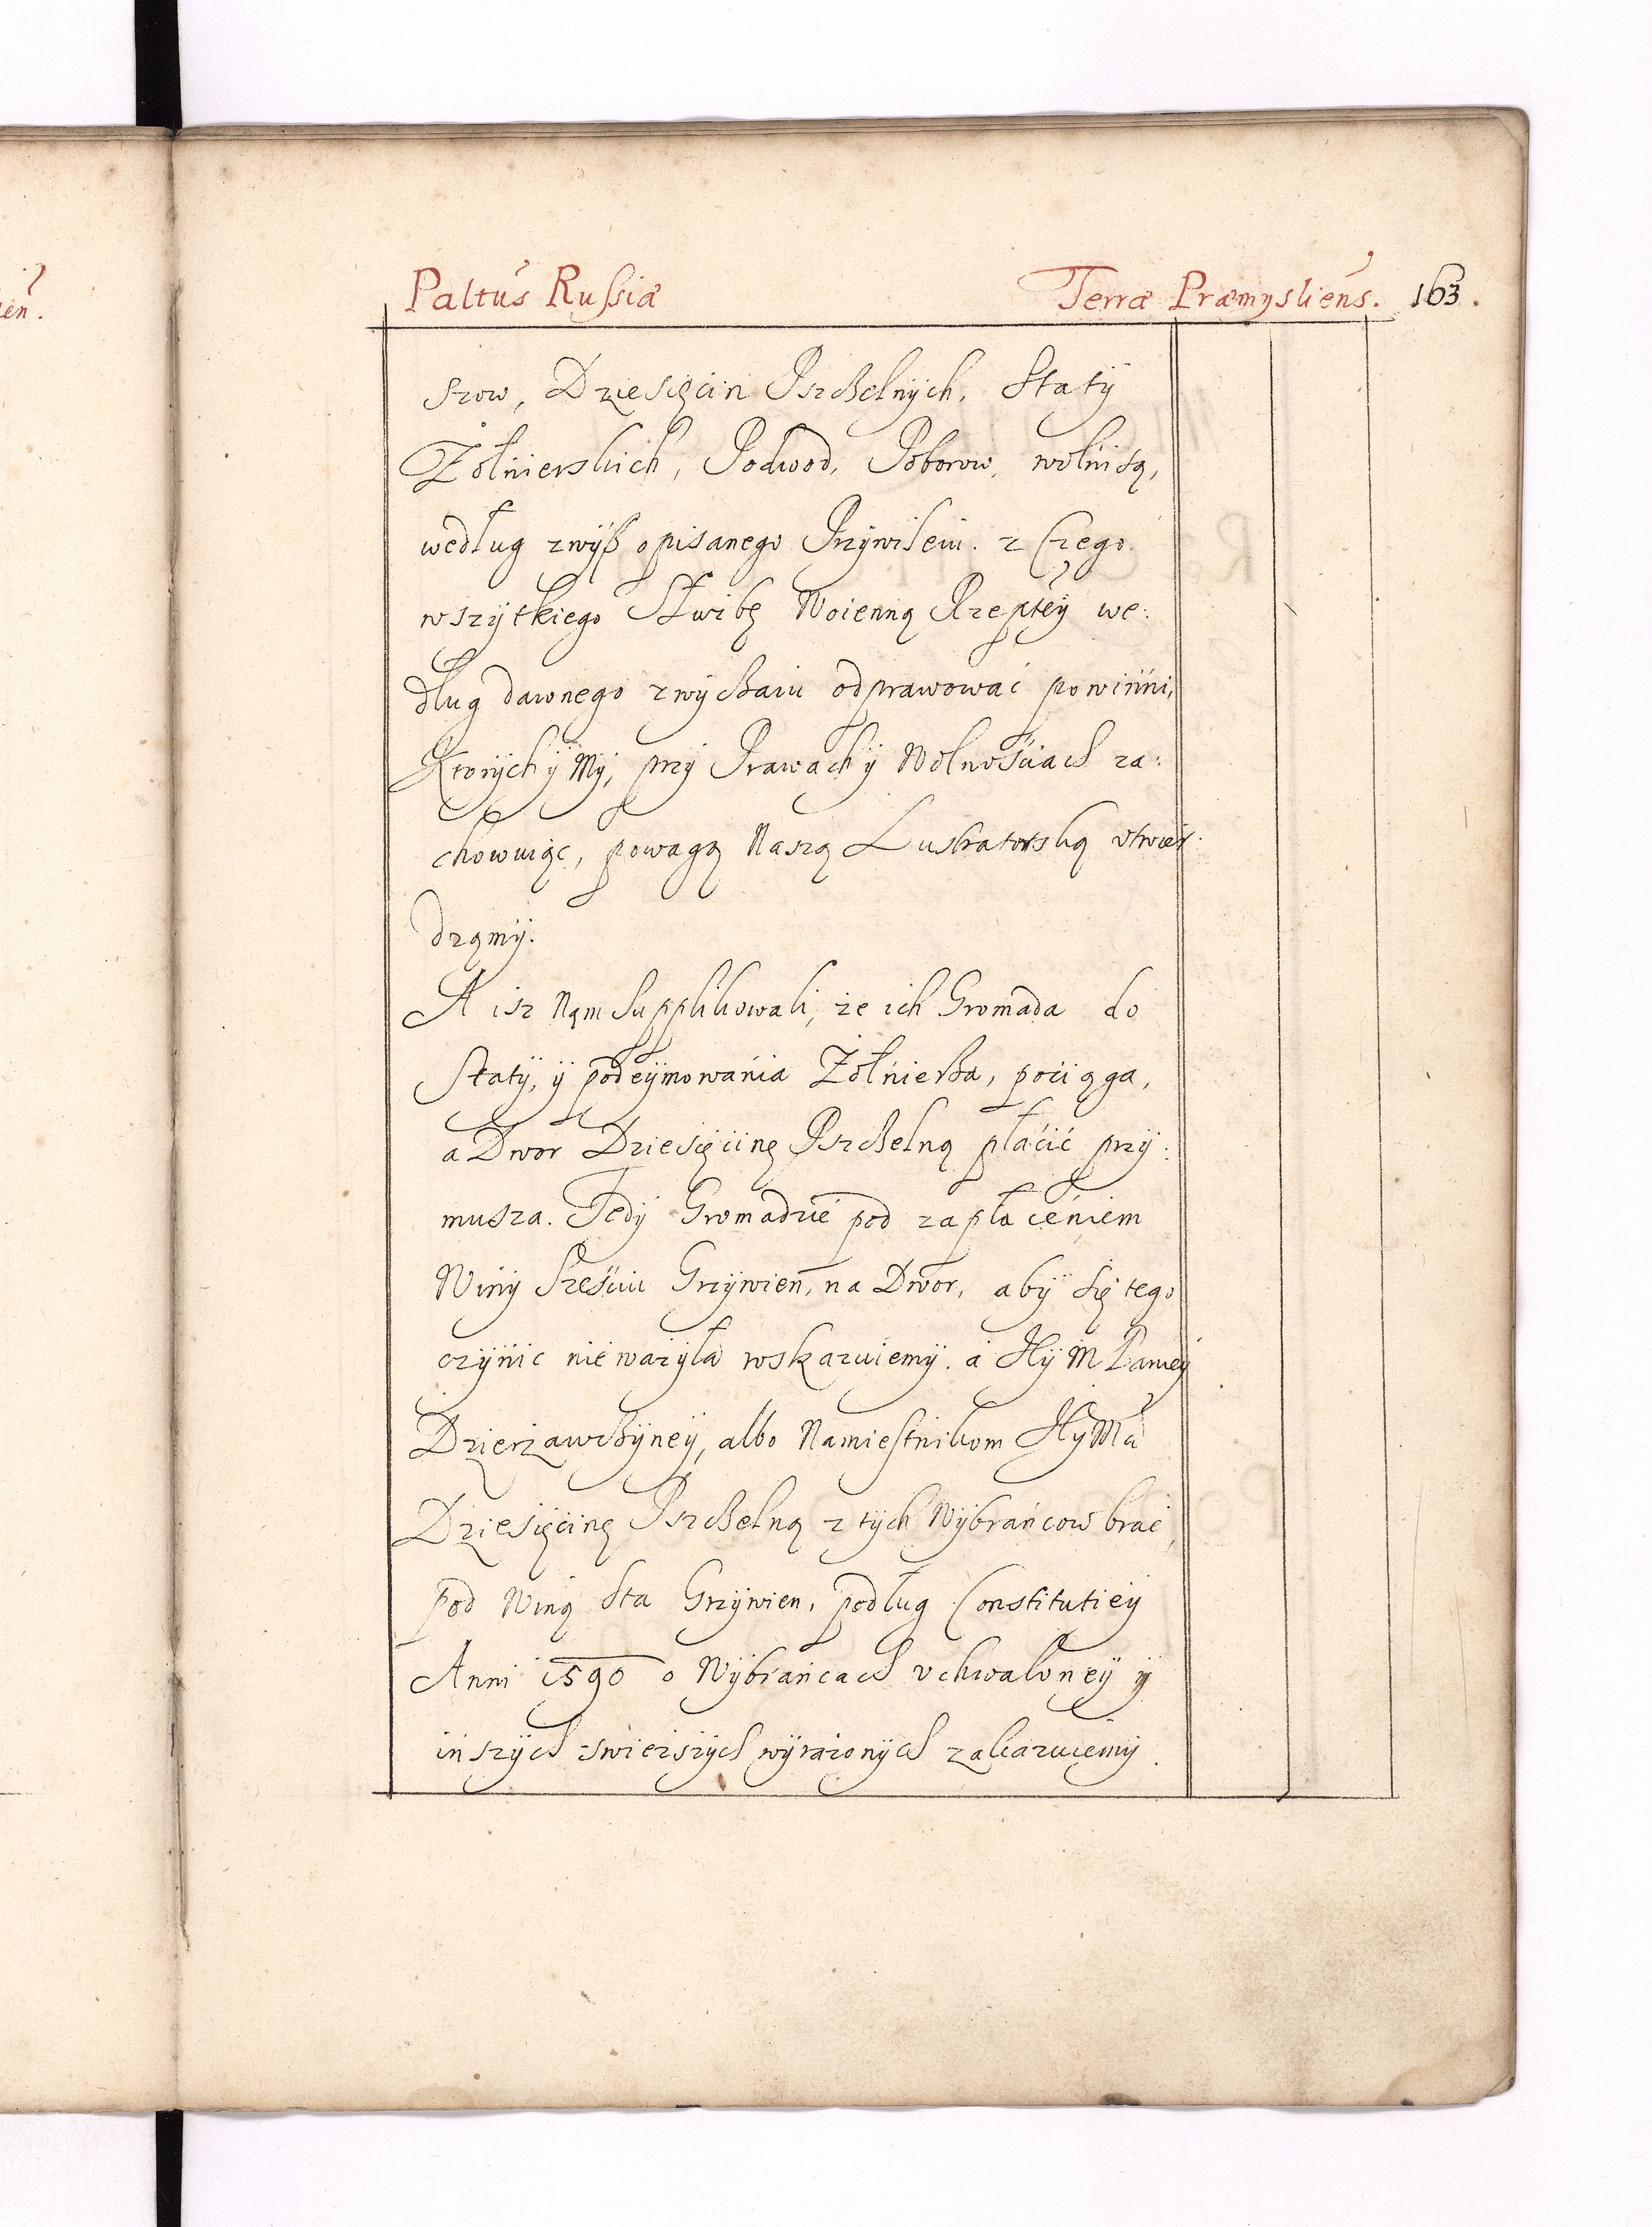 Paltus Russiæ Terræ Præmysliens. 163.
szow, Dziesięcin Pszczelnych, Staty
Żołnierskich, Podwod, Poborow, wolni są,
według zwysz opisanego Przywileiu. z Czego
wszytkiego Służbę Woienną Rzeptey we:
dług dawnego zwyczaiu odprawować powinni,
Ktorych y My, przy Prawach y Wolnościach za:
chowuiąc, powagą Naszą Lustratorską utwier
dzamy.
A isz Nam Supplikowali, że ich Gromada do
Staty, y podeymowania Żołniersza, pociąga,
a Dwor Dziesięcinę Pszczelną płacić przy:
musza. Tedy Gromadzie pod zapłaceniem
Winy Sześciu Grzywien, na Dwor, aby się tego
czynić nieważyła wskazuiemy. a Jey M Paniey
Dzierżawczyney, albo Namiestnikom Jey Mci
Dziesięcinę Pszczelną z tych Wybrańcow brać,
pod Winą Sta Grzywien, podług Constitutiey
Anni 1590 o Wybrańcach uchwaloney y
inszych swieższych wyrażonych zakazuiemy.